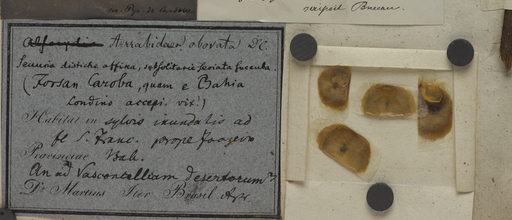 scripsit Bureau.
Arrabidaea obovata DC
Semina disticha affina,
(Forsan Caroba, quam e Bahia
Londino accepi. vix!)
Habitat in sylvis inundatis ad
fl. S. Franc. prope Joazeiro
Provinciae Bah.
An ad Vasconcelliam desertorum?
Dr Martius Iter Brasil.